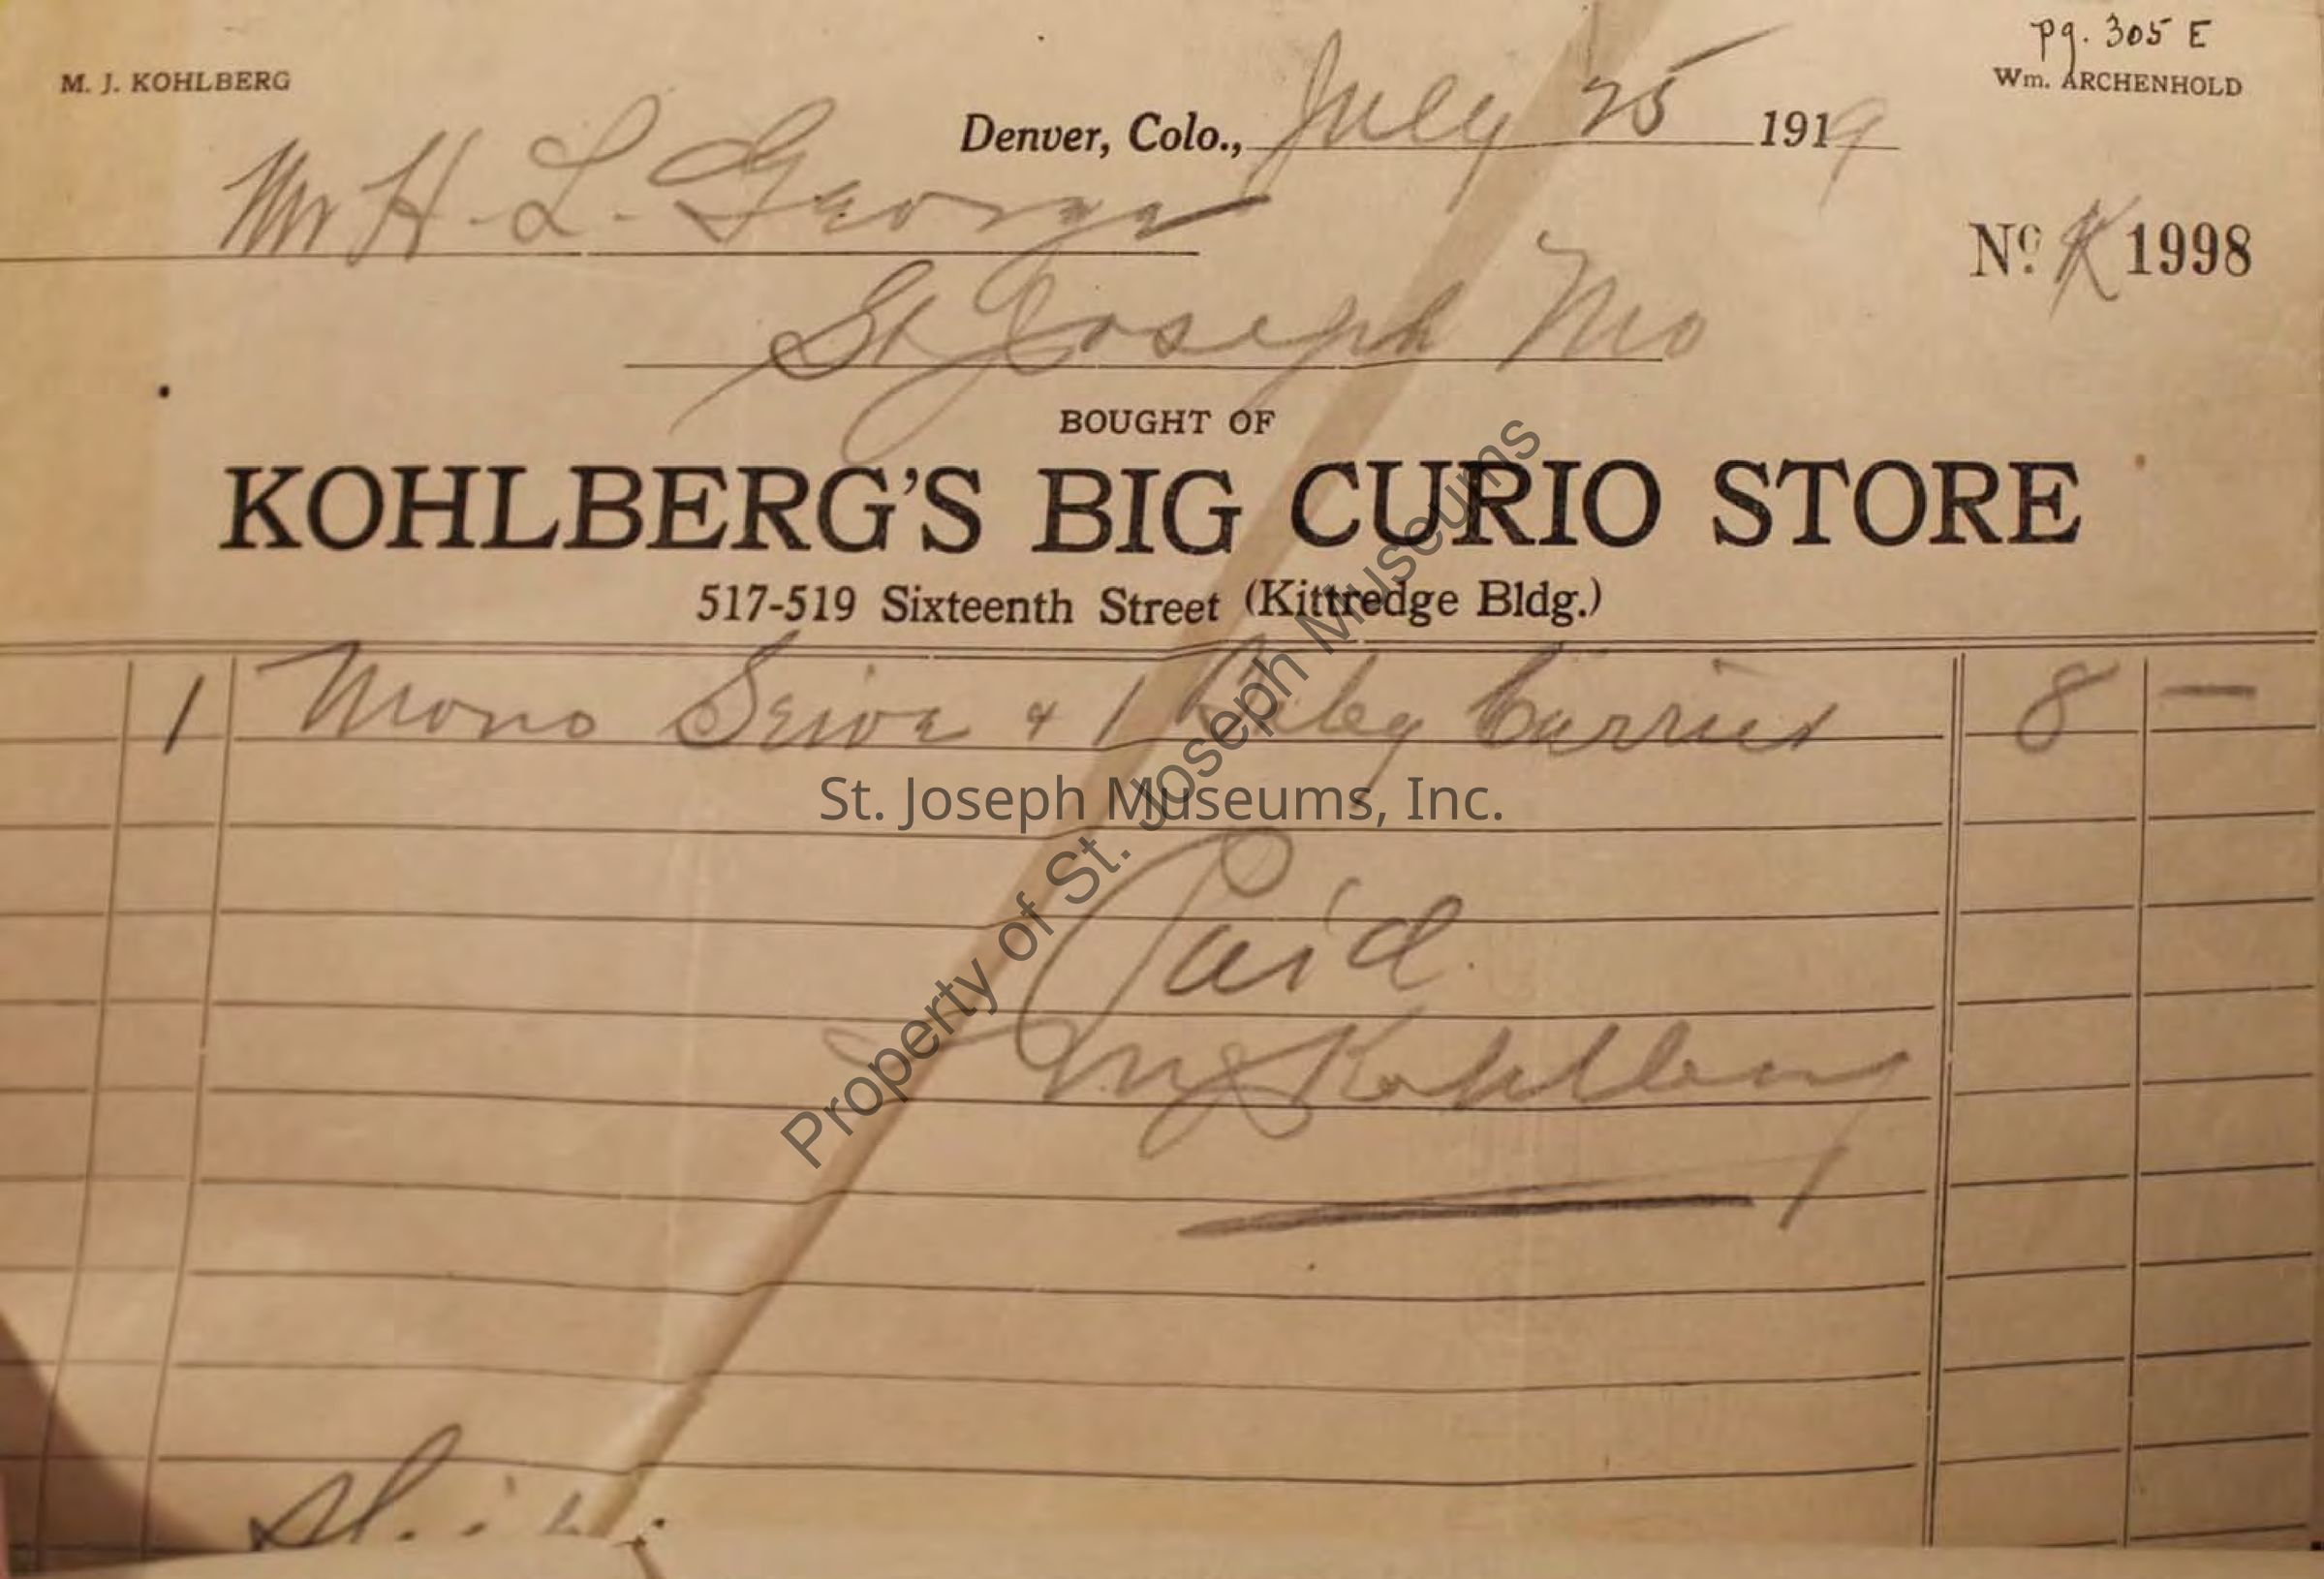 pg. 305 E
M. J. KOHLBERG
Wm. ARCHENHOLD
Denver, Colo., July 25 1919
Mr H. L. George
No. K 1998
St Joseph Mo
BOUGHT OF
KOHLBERG'S BIG CURIO STORE
517-519 Sixteenth Street (Kittredge Bldg.)
1 Mono Seive & 1 Baby Carrier 8 —
St. Joseph Museums, Inc.
Property of St. Joseph Museums
Paid
MJ Kohlberg